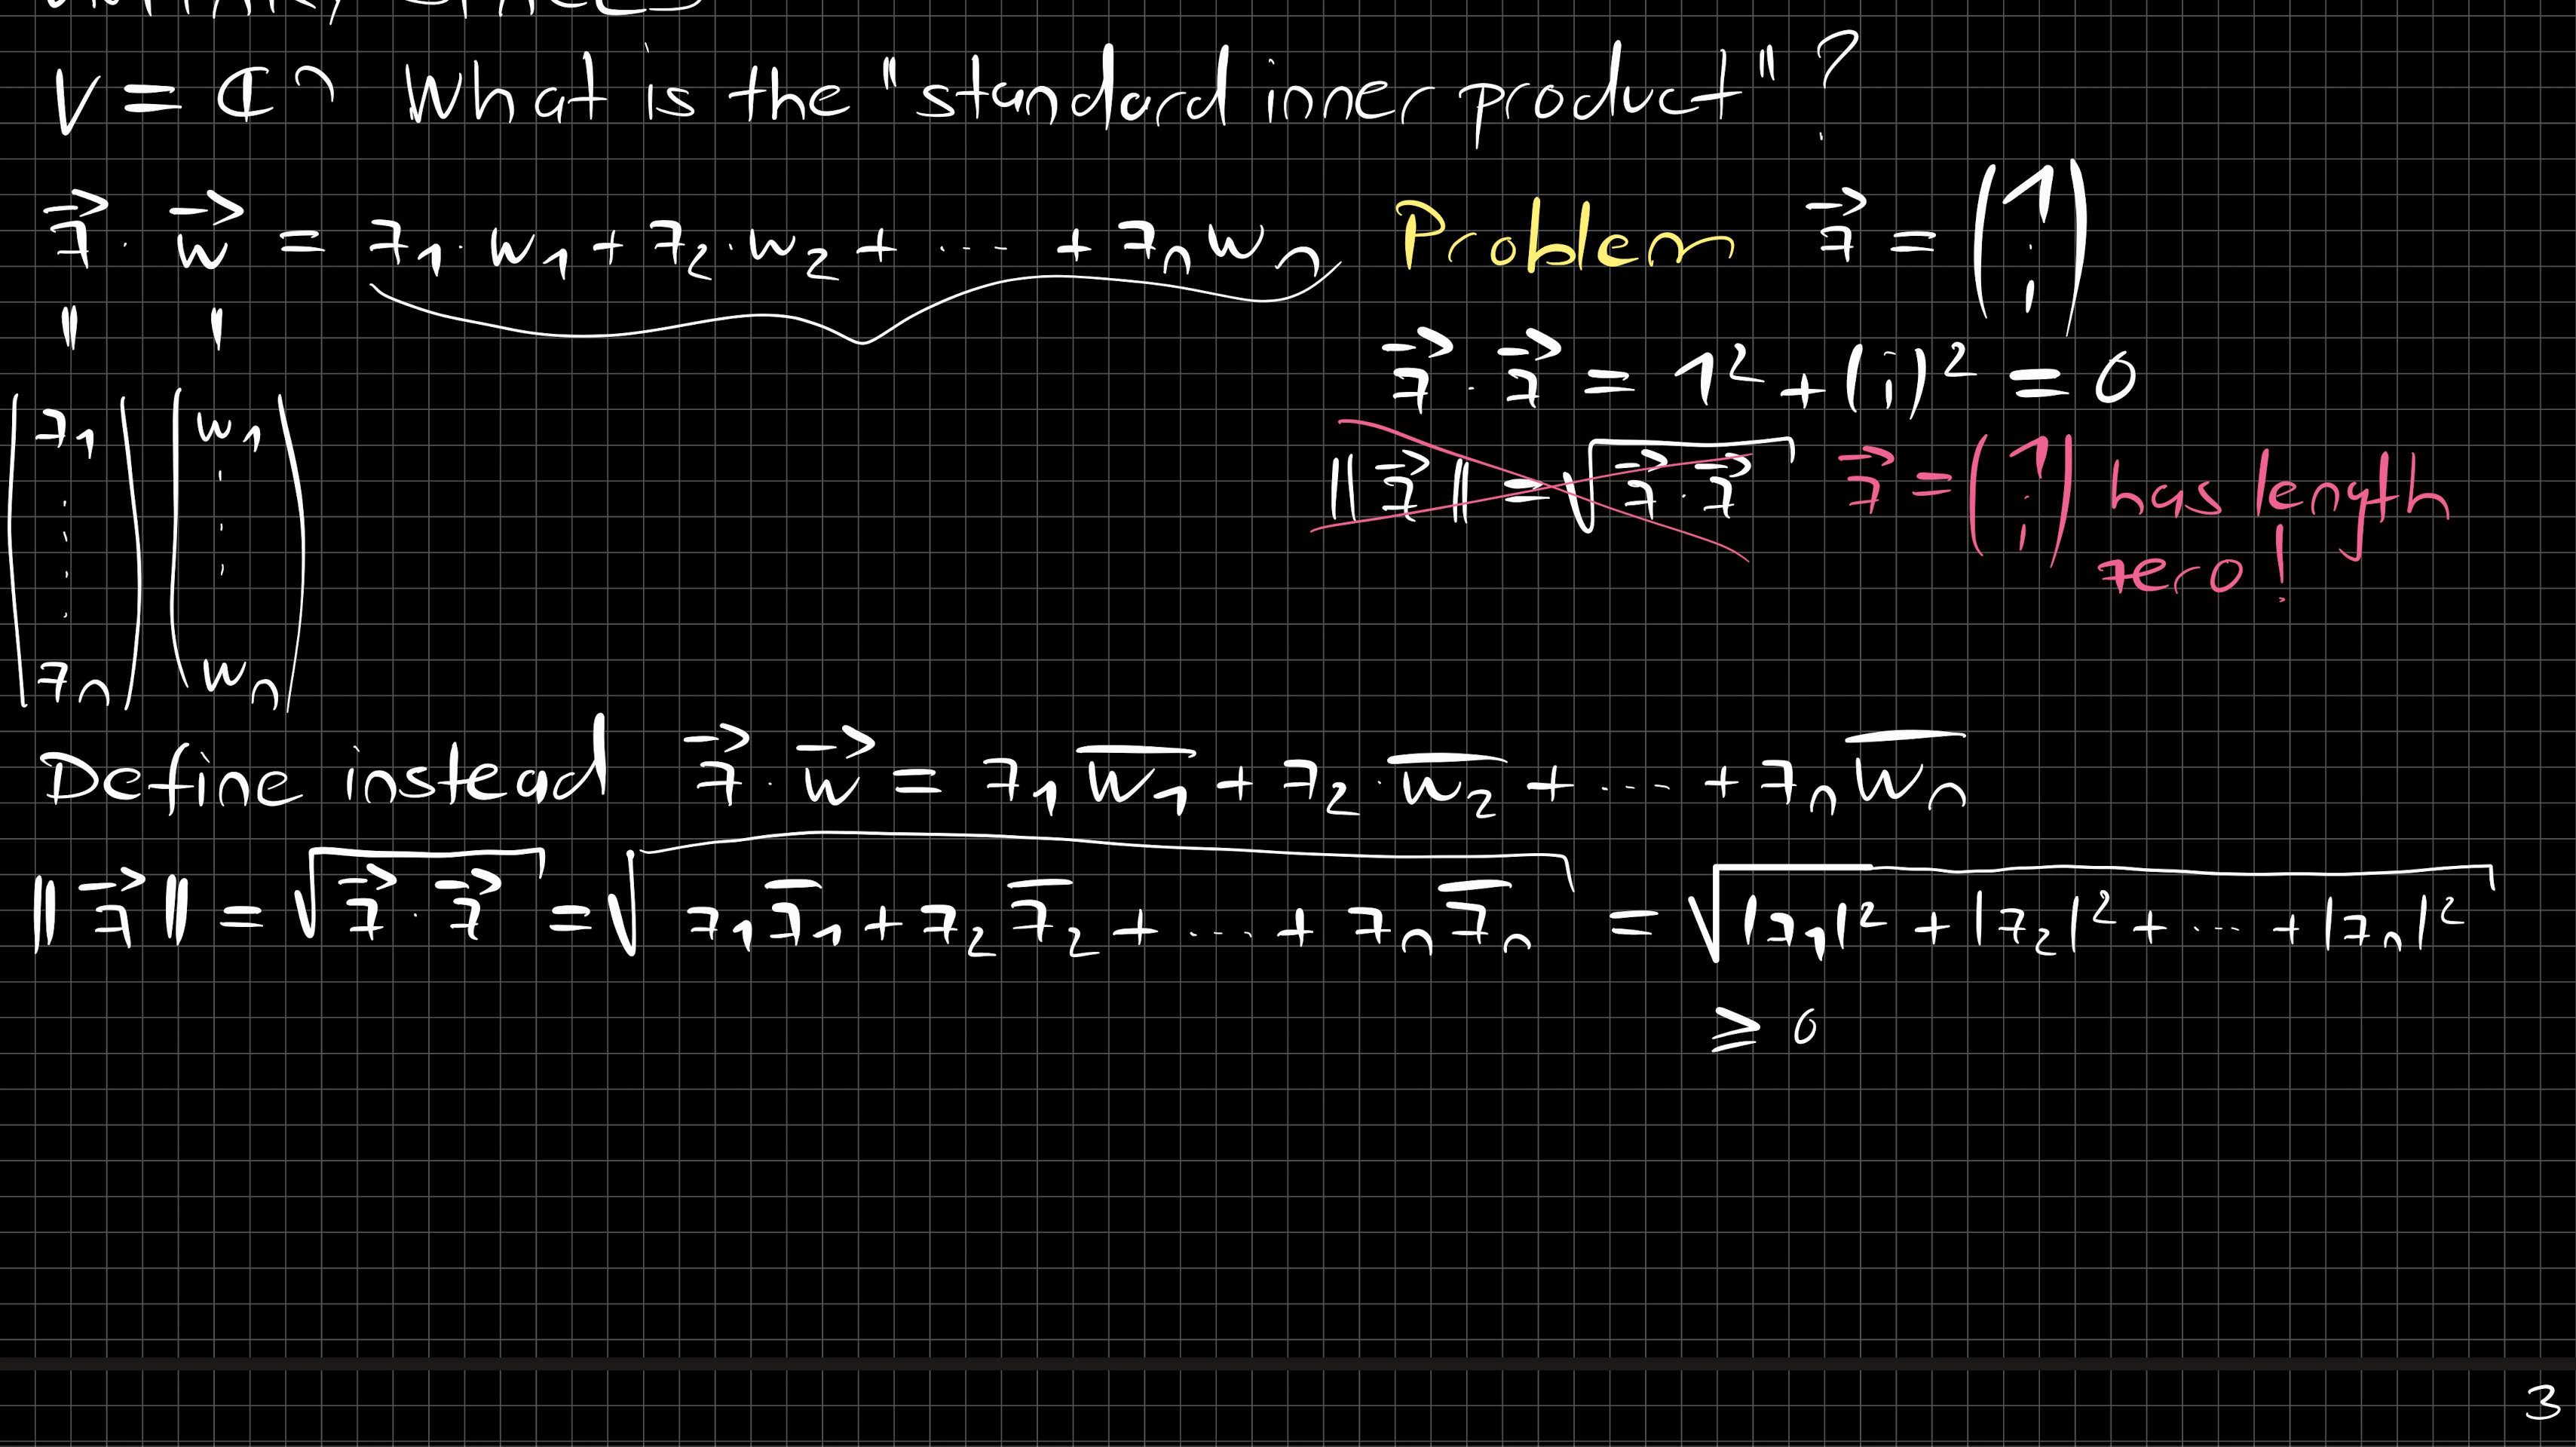 V = ℂⁿ What is the "standard inner product"?
z⃗ · w⃗ = z₁ · w₁ + z₂ · w₂ + ··· + zₙwₙ Problem z⃗ = (1 i)
|| ||
z⃗ · z⃗ = 1² + (i)² = 0
(z₁ ⋮ zₙ) (w₁ ⋮ wₙ)
||z⃗|| = √(z⃗ · z⃗) z⃗ = (1 i) has length
zero!
Define instead z⃗ · w⃗ = z₁w̅₁ + z₂ · w̅₂ + ··· + zₙw̅ₙ
||z⃗|| = √(z⃗ · z⃗) = √(z₁z̅₁ + z₂z̅₂ + ··· + zₙz̅ₙ) = √(|z₁|² + |z₂|² + ··· + |zₙ|²)
≥ 0
3